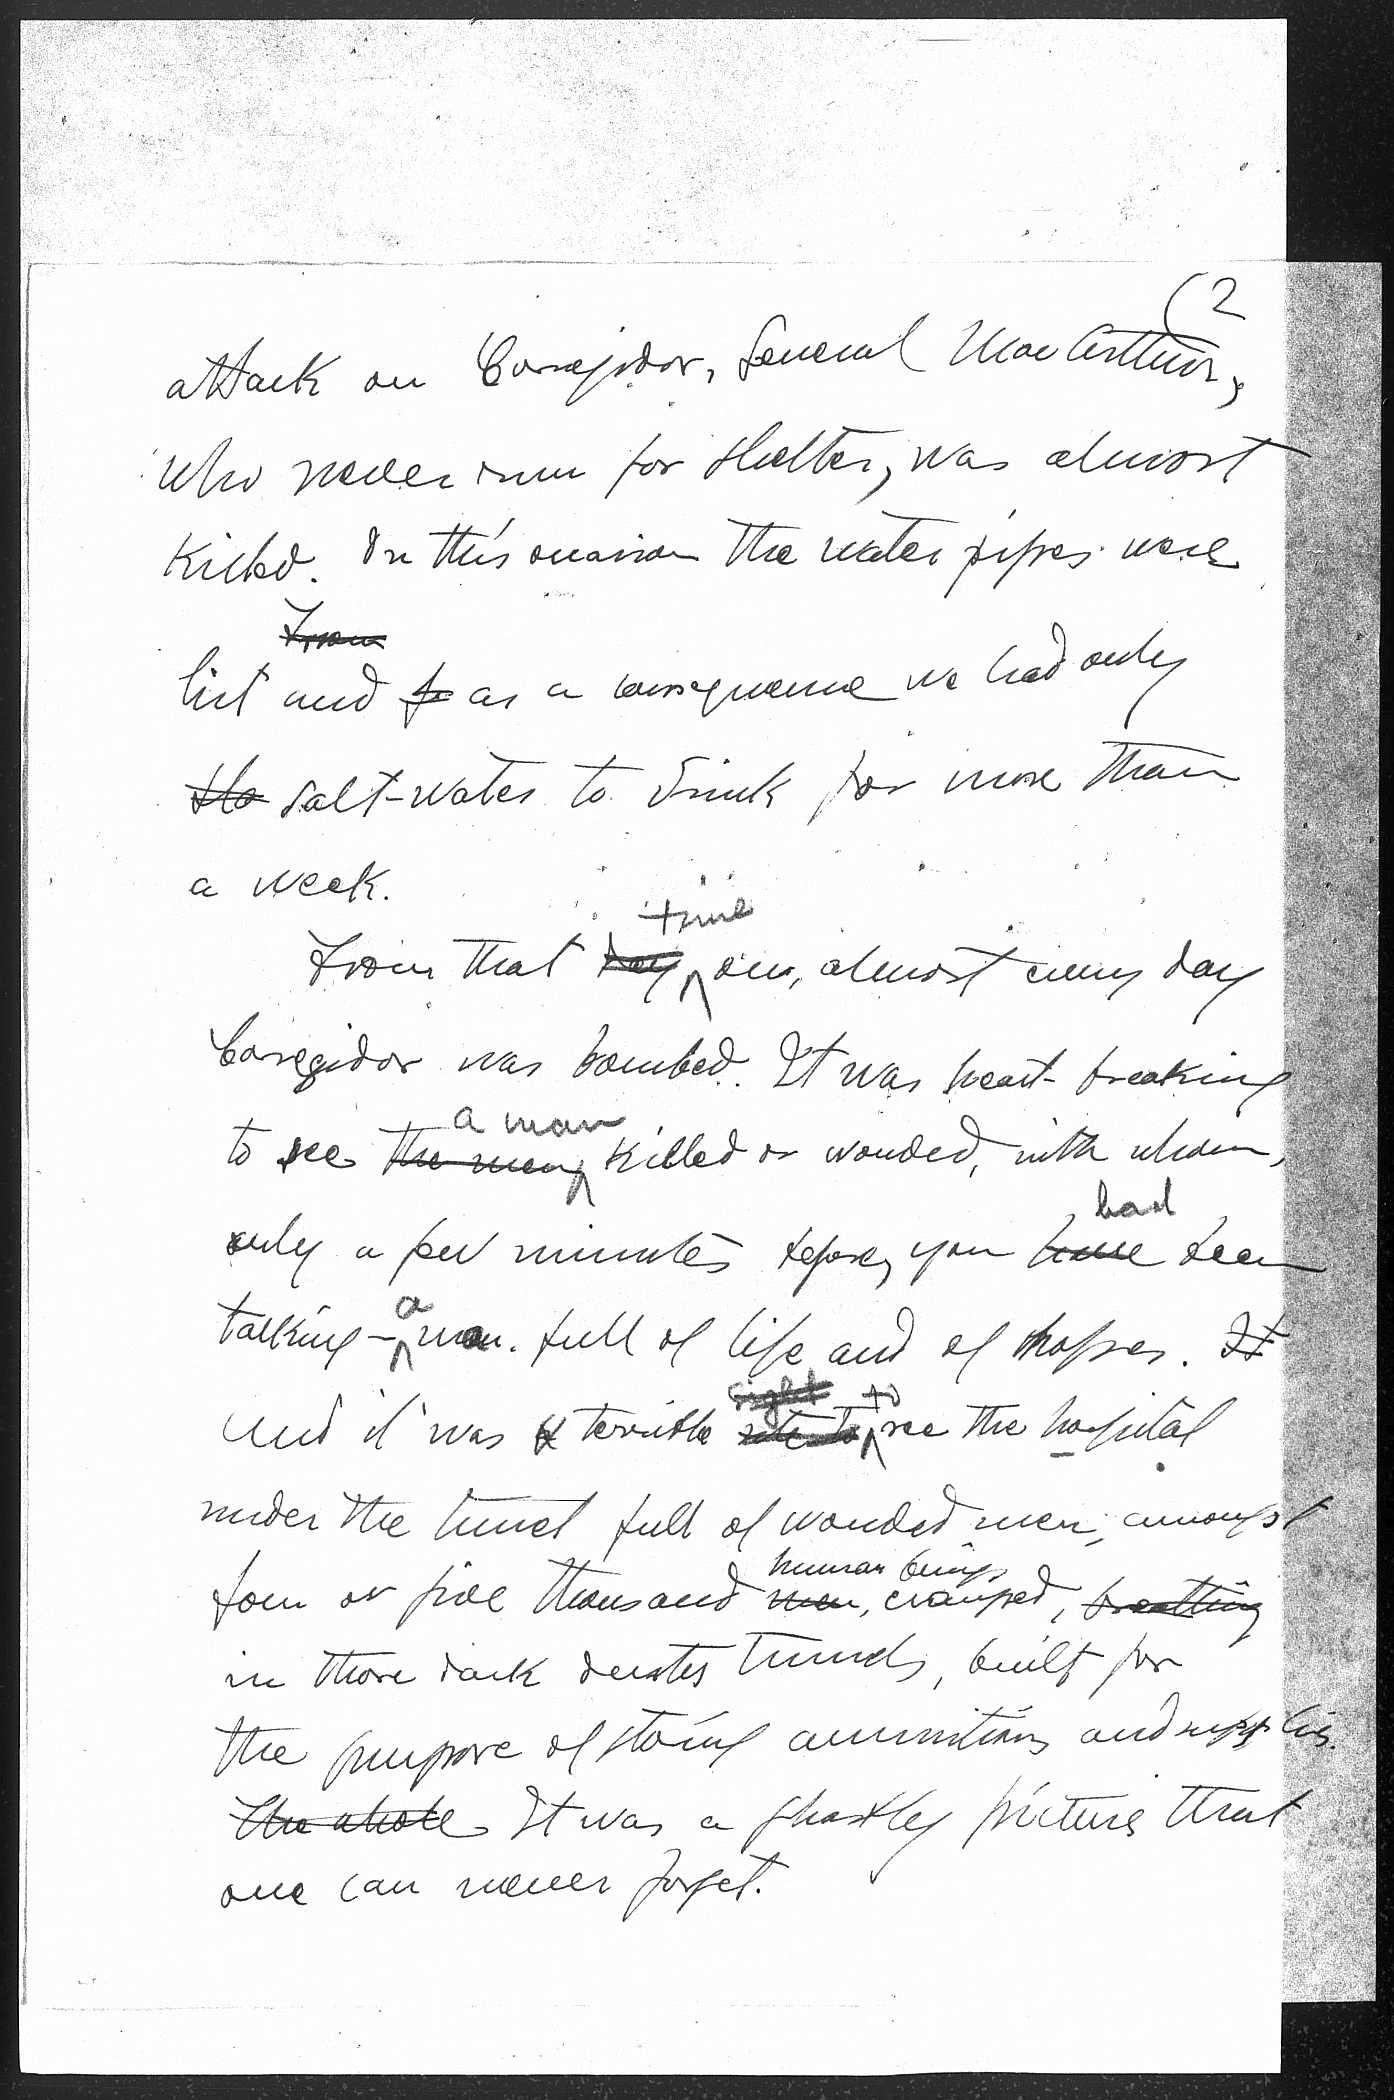 (2
attack on Corregidor, General MacArthur,
who never run for shelter, was almost
killed. In this occasion the water pipes were
From
hit and fr as a consequence we had only
the salt-water to drink for more than
a week.
time
From that day on, almost every day
Corregidor was bombed. It was heart-breaking
a man
to see the men killed or wouded, with whom,
had
only a few minutes before, you have been
a
talking - man full of life and of hopes. It
sight to
And it was a terrible site to see the hospital
under the tunel full of wouded men, amongst
human beings
four or five thousand men, cramped, breathing
in those dark tunels, built for
the purpose of storing ammunitions and supplies.
The whole It was a ghastly picture that
one can never forget.